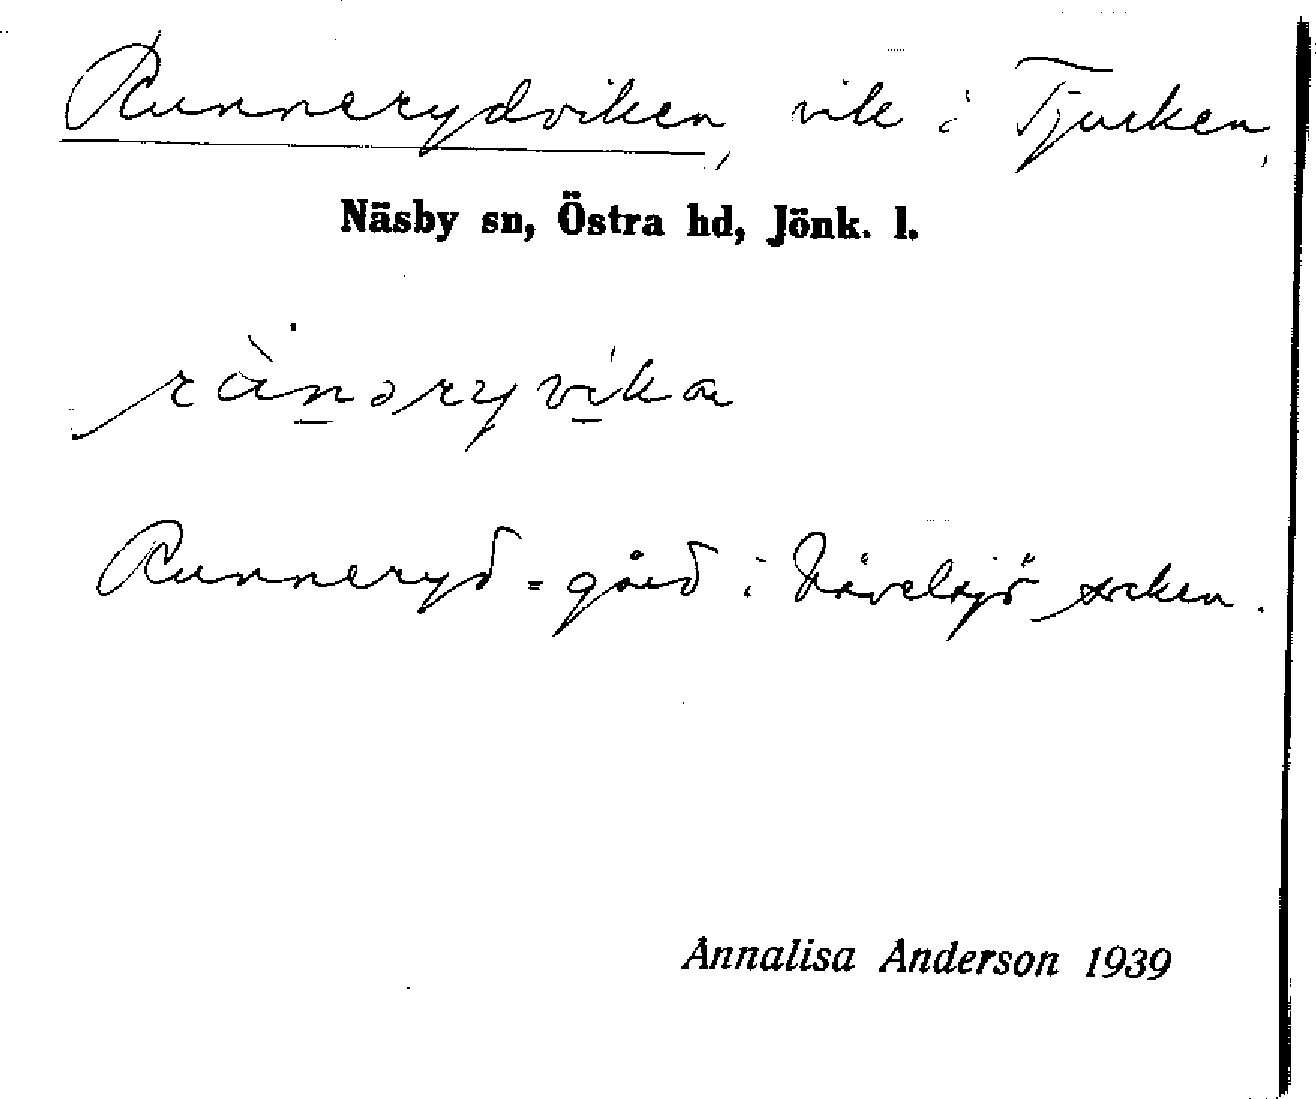 Runnerydviken, vik i Tjurken,
Näsby sn, Östra hd, Jönk. l.
rànəryvíka
Runneryd = gård i Nävelsjö socken.
Annalisa Anderson 1939